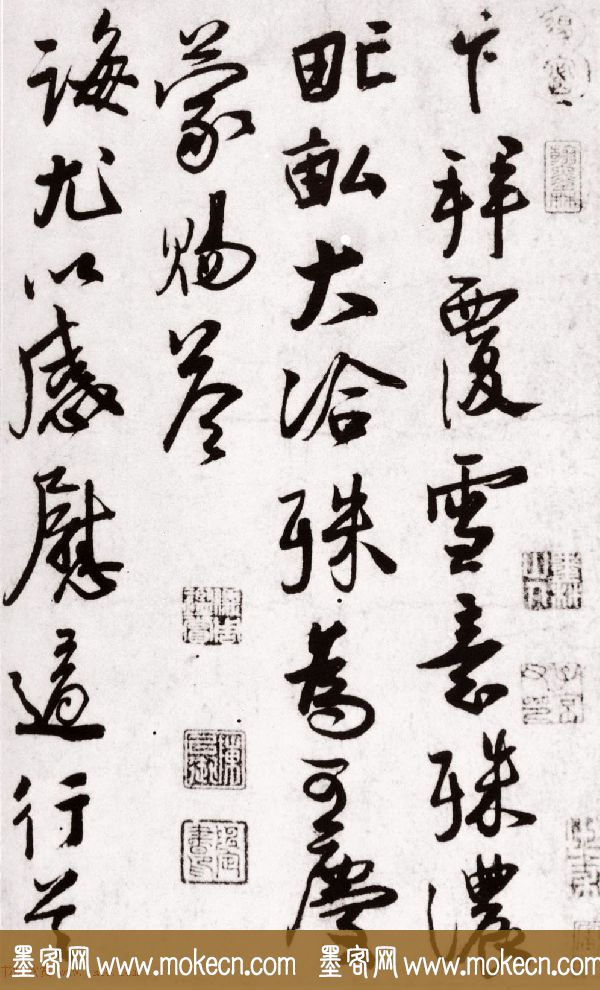 卞拜覆雪意殊濃
甿畝大洽殊為可慶
蒙賜荅
誨尤以感慰適行首
墨客网 www.mokecn.com 墨客网 www.mokecn.com